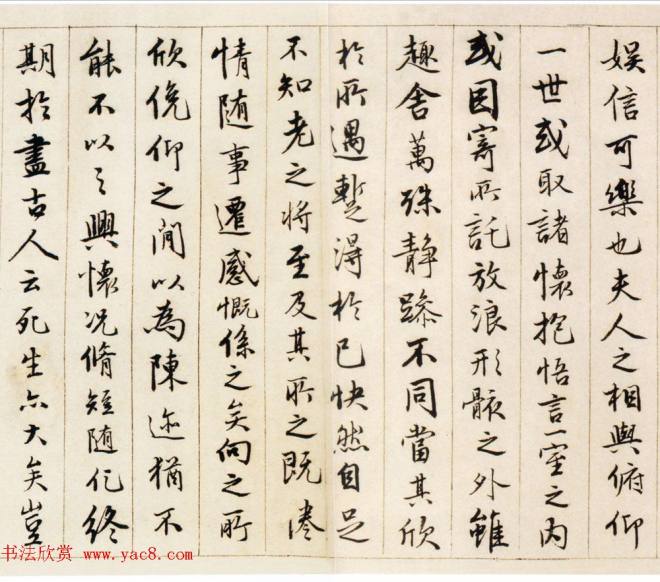 娱信可樂也夫人之相與俯仰
一世或取諸懷抱悟言一室之内
或因寄所託放浪形骸之外雖
趣舍萬殊静躁不同當其欣
於所遇蹔得於已快然自足
不知老之将至及其所之既惓
情随事遷感慨係之矣向之所
欣俛仰之間以為陳迹猶不
能不以之興懷况脩短随化終
期於盡古人云死生亦大矣豈
书法欣赏 www.yac8.com